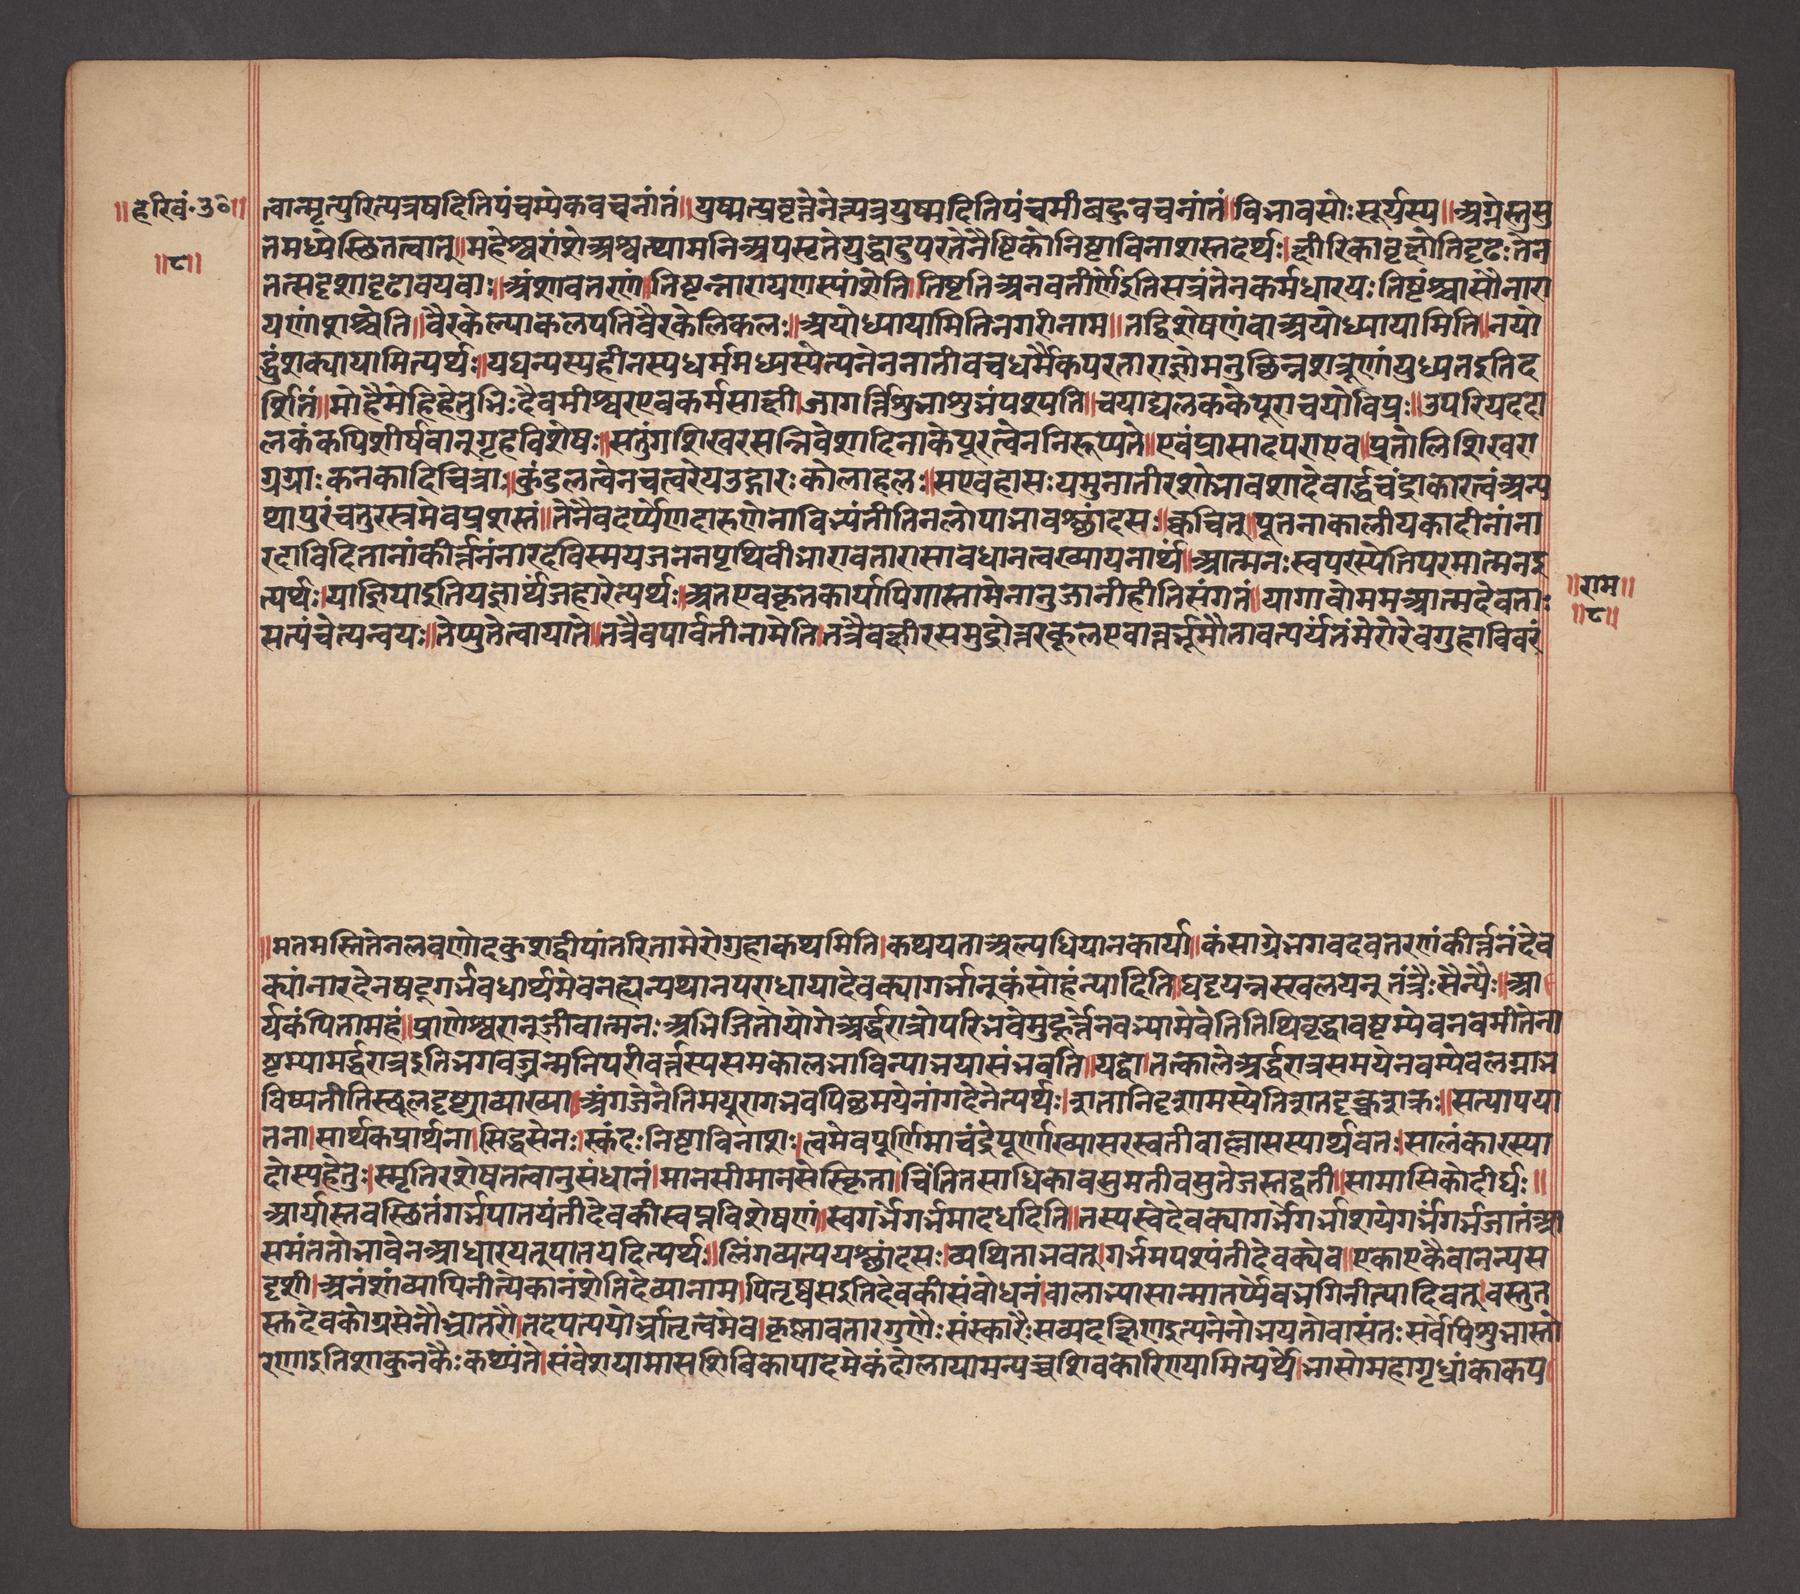 ॥हरिवं॰उ०॥
॥८॥
त्वान्मृत्युरित्यत्रषदितिपंचम्येकवचनांतं॥युष्मत्प्रवृत्तेनेत्यत्रयुष्मदितिपंचमीबहुवचनांतं॥विभावसोःसूर्यस्य॥अग्नेस्तुसु
तमध्येस्छितत्वात्॥महेश्वरांशेअश्वत्थामनिअपसृतेयुद्धादुपरतेनैष्टिकोनिष्टाविनाशस्तदर्थः।ह्नीरिकावृह्नोतिदृढःतेन
तत्सदृशादृढावयवाः॥अंशावतरणं॥तिष्टन्नारायणस्यांशेति।तिष्टतिअनवतीर्णेइतिसत्रंतेनकर्मधारयःतिष्टंश्चासौनारा
यणांशश्चेति॥वैरकेल्याकलयतिवैरकेलिकलः॥अयोध्यायामितिनगरीनाम॥तद्विशेषणंवाअयोध्यायामिति॥नयो
द्धुंशक्यायामित्यर्थः॥यघन्यस्यहीनस्यधर्ममध्यस्येत्यनेननातीवचधर्मैकपरताराज्ञोमनुछिन्नशत्रूणांयुध्यतइतिद
र्शितं॥मोहैमेहिहेतुभिःदैवमीश्वरएवकर्मसाह्नी।जागर्त्तिशुभाशुभंपश्यति॥चयाद्यलककेयूराचयोविप्रः॥उपरियदट्टा
लकंकपिशीर्षवानुगृहविशेषः॥सतुंगशिखरसन्निवेशादिनाकेयूरत्वेननिरूप्यते॥एवंप्रासादपराएव॥प्रतोलिशिखरा
ग्रग्राःकनकादिचित्राः॥कुंडलत्वेनचत्वरेयउद्गारःकोलाहलः॥सएवहासःयमुनातीरशोभावशादेवार्द्धचंद्राकारत्वंअन्य
थापुरंचतुरस्त्रमेवप्रशस्तं॥तेनैवदर्प्येणदारुणेनाविभ्यंतीतिनलोपाभावश्छांदसः॥क्वचित्॥पूतनाकालीयकादीनांना
रदाविदितानांकीर्त्तनंनारदेविस्मयजननेनपृथिवीभारावतारासावधानत्वख्यायनार्थं॥आत्मनःस्वपरस्येतिपरमात्मनइ
त्यर्थः।याज्ञियाइतियज्ञार्थंजहारेत्यर्थः॥अतएवकृतकार्यापिगास्तामेनानुजानीहीतिसंगतं॥यागावोममआत्मदेवताः
सत्यंचेत्यन्वयः॥तेप्युतेत्वायाते॥तत्रैवपार्वतीनामेति।तत्रैवह्नीरसमुद्रोत्तरकूलएवान्तर्भूमौतावत्पर्यंतंमेरोरेवगुहाविवरं
॥राम॥
॥८॥
॥मतमस्तितेनलवणोदकुशद्वीपांतरितामेरोगुहाकथ्यमिति।कथ्ययताअल्पधियानकार्या॥कंसाग्रेभगवदवतरणंकीर्त्तनंदेव
क्यांनारदेनषट्गर्भवधार्थमेवनह्यन्यथानपराधायादेवक्यागर्भानुकंसोहंन्यादिति॥घट्टयन्नस्खलयन्नु तंत्रैःसैन्यैः॥आ
र्यकंपितामहं॥प्राणेश्वरानुजीवात्मनःअभिजितोयोगेअर्द्धरात्रोपरिभवेमुहूर्त्तेनवभ्यामेवेतितिथिवृद्धावष्टम्येवनवमीतेना
ष्टम्यामर्द्धरात्रइतिभगवज्जन्मनिपरीवर्त्तस्यसमकालभाविन्याभयासंभवति॥यद्वा।तत्कालेअर्द्धरात्रसमयेनवम्येवलग्नाभ
विष्यतीतिस्थूलदृष्ट्याव्याख्या॥अंगजेनेतिमयूरागभवपिछमयेनांगदेनेत्यर्थः।शतानिदृशामस्येतिशतदृक्शक्रः॥सत्यापया
तना।सार्थकप्रार्थना।सिद्धसेनः।स्कंदःनिष्टाविनाशः।त्वमेवपूर्णिमाचंद्रेपूर्णाख्यासरस्वतीवाल्लासस्यार्थवेतः।सालंकारस्या
दोस्यहेतुः।स्मृतिरशेषतत्वानुसंधानं।मानसीमानसेस्छिता।चिंतितसाधिकावसुमतीवसुतेजस्तद्वती॥सामासिकोदीर्घः॥
आर्यास्तवस्छितंगर्भंपातयंतीदेवकीस्वप्नविशेषणं॥स्वगर्भेगर्भमादधदिति॥तस्यस्वेदेवक्यागर्भेगर्भाशयेगर्भंगर्भजातंआ
समंततोभावेनआधारयत्पातयदित्यर्थः॥लिंगव्यत्ययश्छांदसः।व्यथिताभवत्।गर्भमपश्यंतीदेवक्येव॥एकाएकैवानन्यस
दृशी।अनंशांव्यापिनीत्येकानंशेतिदेव्यानाम।पितृष्वसइतिदेवकीसंबोधनं।वालाभ्यासान्मातर्प्येवभगिनीत्यादिवत्।वस्तुत
स्तदेवकोग्रसेनौभ्रातरौ।तदपत्ययोर्भ्रातृत्वमेव।कृष्णावतारगुणैःसंस्कारैःसव्यदह्निणइत्यनेनोभयतोवासंतःसर्वेपिशुभास्तो
रणाइतिशाकुनकैःकथ्यंते।संवेशयामासशिबिकापादमेकंदोलायामन्यच्चशिवकोरिणयामित्यर्थे।भासोमहागृध्रांकाकप